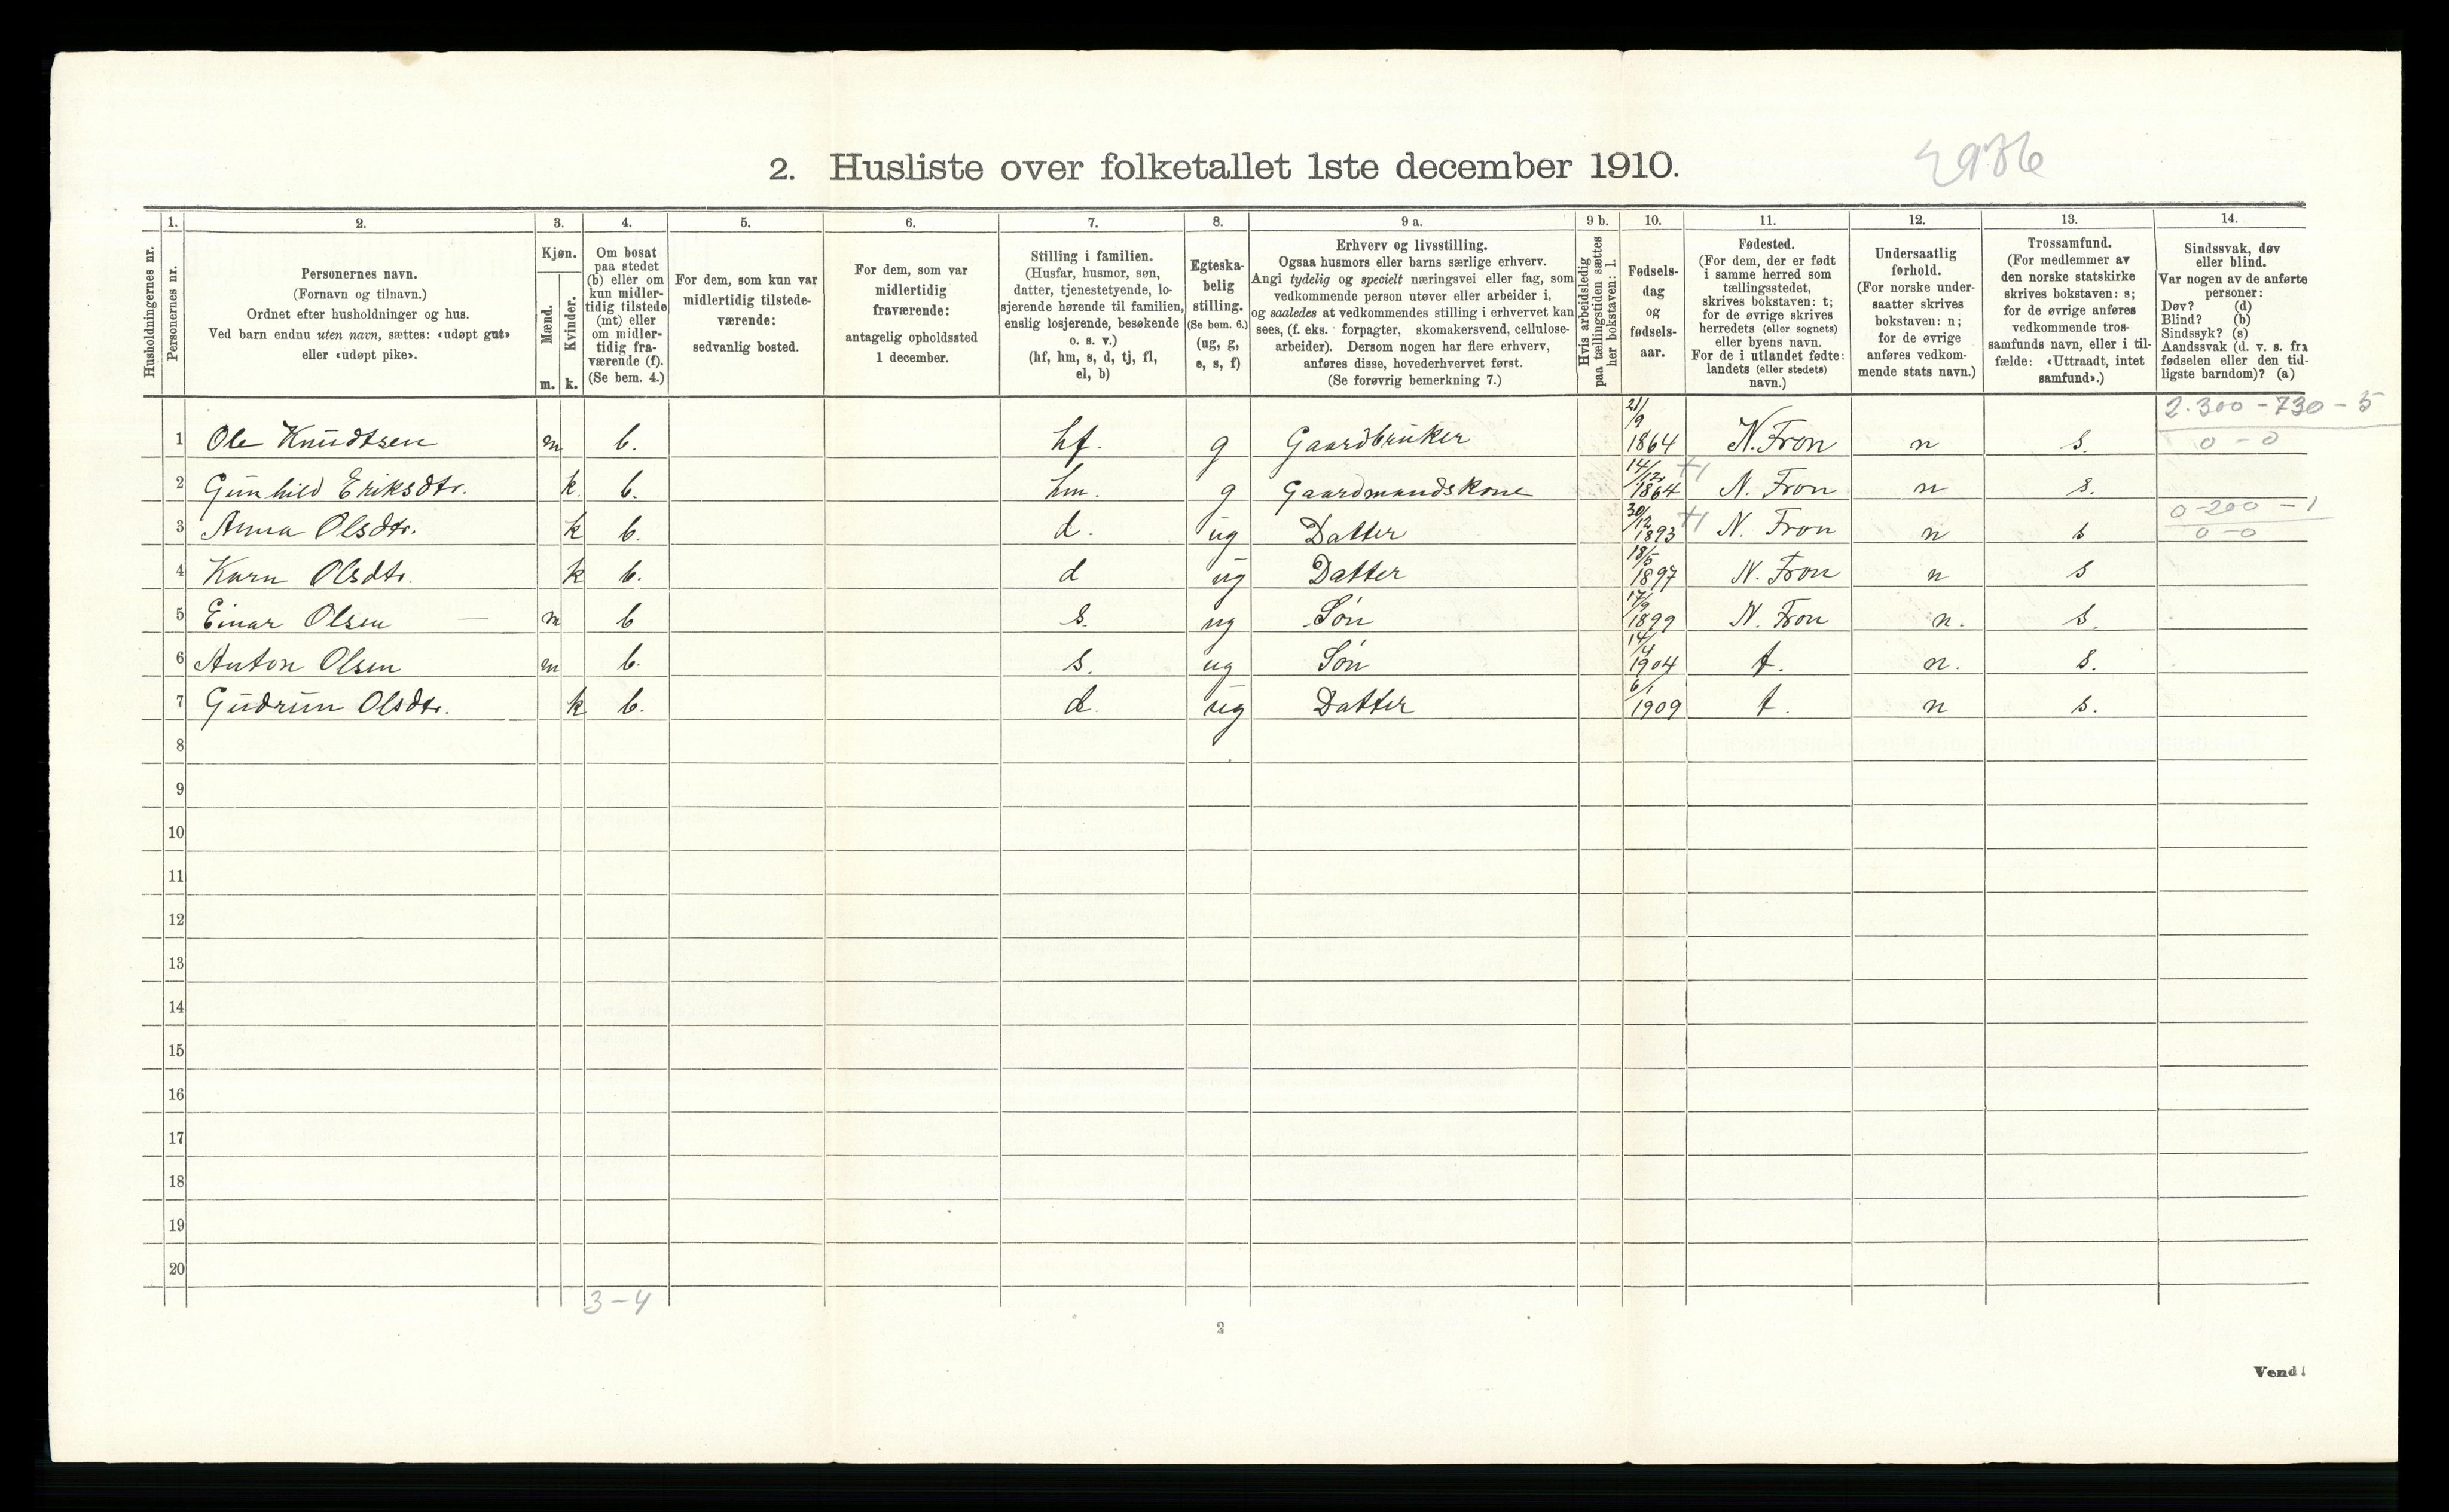 2. Husliste over folketallet 1ste december 1910.
Husholdningernes nr.
1. Personernes nr.
2. Personernes navn.
(Fornavn og tilnavn.)
Ordnet efter husholdninger og hus.
Ved barn endnu uten navn, sættes: «udøpt gut»
eller «udøpt pike».
3. Kjøn.
Mænd. m.
Kvinder. k.
4. Om bosat
paa stedet
(b) eller om
kun midler-
tidig tilstede
(mt) eller
om midler-
tidig fra-
værende (f).
(Se bem. 4.)
5. For dem, som kun var
midlertidig tilstede-
værende:
sedvanlig bosted.
6. For dem, som var
midlertidig
fraværende:
antagelig opholdssted
1 december.
7. Stilling i familien.
(Husfar, husmor, søn,
datter, tjenestetyende, lo-
sjerende hørende til familien,
enslig losjerende, besøkende
o. s. v.)
(hf, hm, s, d, tj, fl,
el, b)
8. Egteska-
belig
stilling.
(Se bem. 6.)
(ug, g,
e, s, f)
9 a. Erhverv og livsstilling.
Ogsaa husmors eller barns særlige erhverv.
Angi tydelig og specielt næringsvei eller fag, som
vedkommende person utøver eller arbeider i,
og saaledes at vedkommendes stilling i erhvervet kan
sees, (f. eks. forpagter, skomakersvend, cellulose-
arbeider). Dersom nogen har flere erhverv,
anføres disse, hovederhvervet først.
(Se forøvrig bemerkning 7.)
9 b. Hvis arbeidsledig
paa tællingstiden sættes
her bokstaven: l.
10. Fødsels-
dag
og
fødsels-
aar.
11. Fødested.
(For dem, der er født
i samme herred som
tællingsstedet,
skrives bokstaven: t;
for de øvrige skrives
herredets (eller sognets)
eller byens navn.
For de i utlandet fødte:
landets (eller stedets)
navn.)
12. Undersaatlig
forhold.
(For norske under-
saatter skrives
bokstaven: n;
for de øvrige
anføres vedkom-
mende stats navn.)
13. Trossamfund.
(For medlemmer av
den norske statskirke
skrives bokstaven: s;
for de øvrige anføres
vedkommende tros-
samfunds navn, eller i til-
fælde: «Uttraadt, intet
samfund».)
14. Sindssvak, døv
eller blind.
Var nogen av de anførte
personer:
Døv? (d)
Blind? (b)
Sindssyk? (s)
Aandssvak (d. v. s. fra
fødselen eller den tid-
ligste barndom)? (a)
2.300 - 730 - 5
1 Ole Knudtsen m b. hf. g Gaardbruker 21/9 1864 N. Fron n s. 0 - 0
2 Gunhild Eriksdtr. k. b. hm. g Gaardmandskone 14/12 1864 N. Fron n s.
0-200 - 1
3 Anna Olsdtr. k b. d. ug Datter 30/12 1893 N. Fron n s 0-0
4 Karn Olsdtr. k b. d ug Datter 18/5 1897 N. Fron n s
5 Einar Olsen m b s. ug Søn 17/9 1899 N. Fron n. s.
6 Anton Olsen m b. s. ug Søn 14/4 1904 t. n. s.
7 Gudrun Olsdtr. k b. d. ug Datter 6/1 1909 t. n s.
8
9
10
11
12
13
14
15
16
17
18
19
20
3-4
2
Vend!